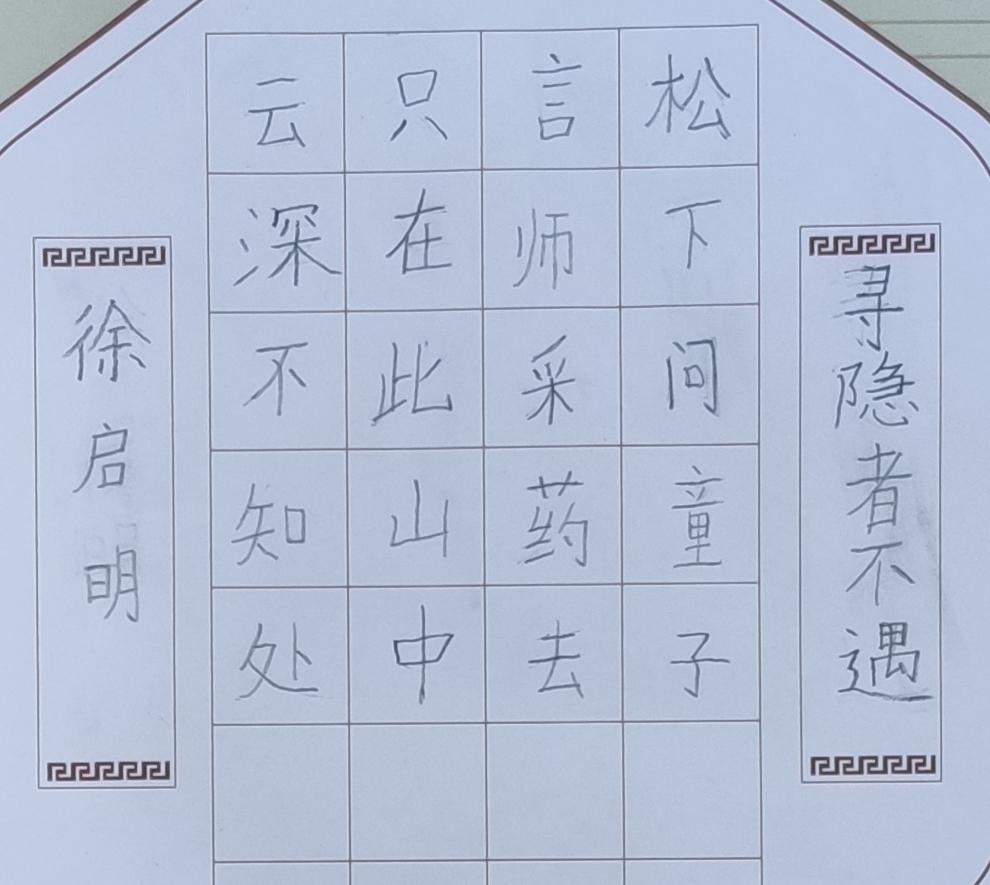 寻隐者不遇
松下问童子
言师采药去
只在此山中
云深不知处
徐启明